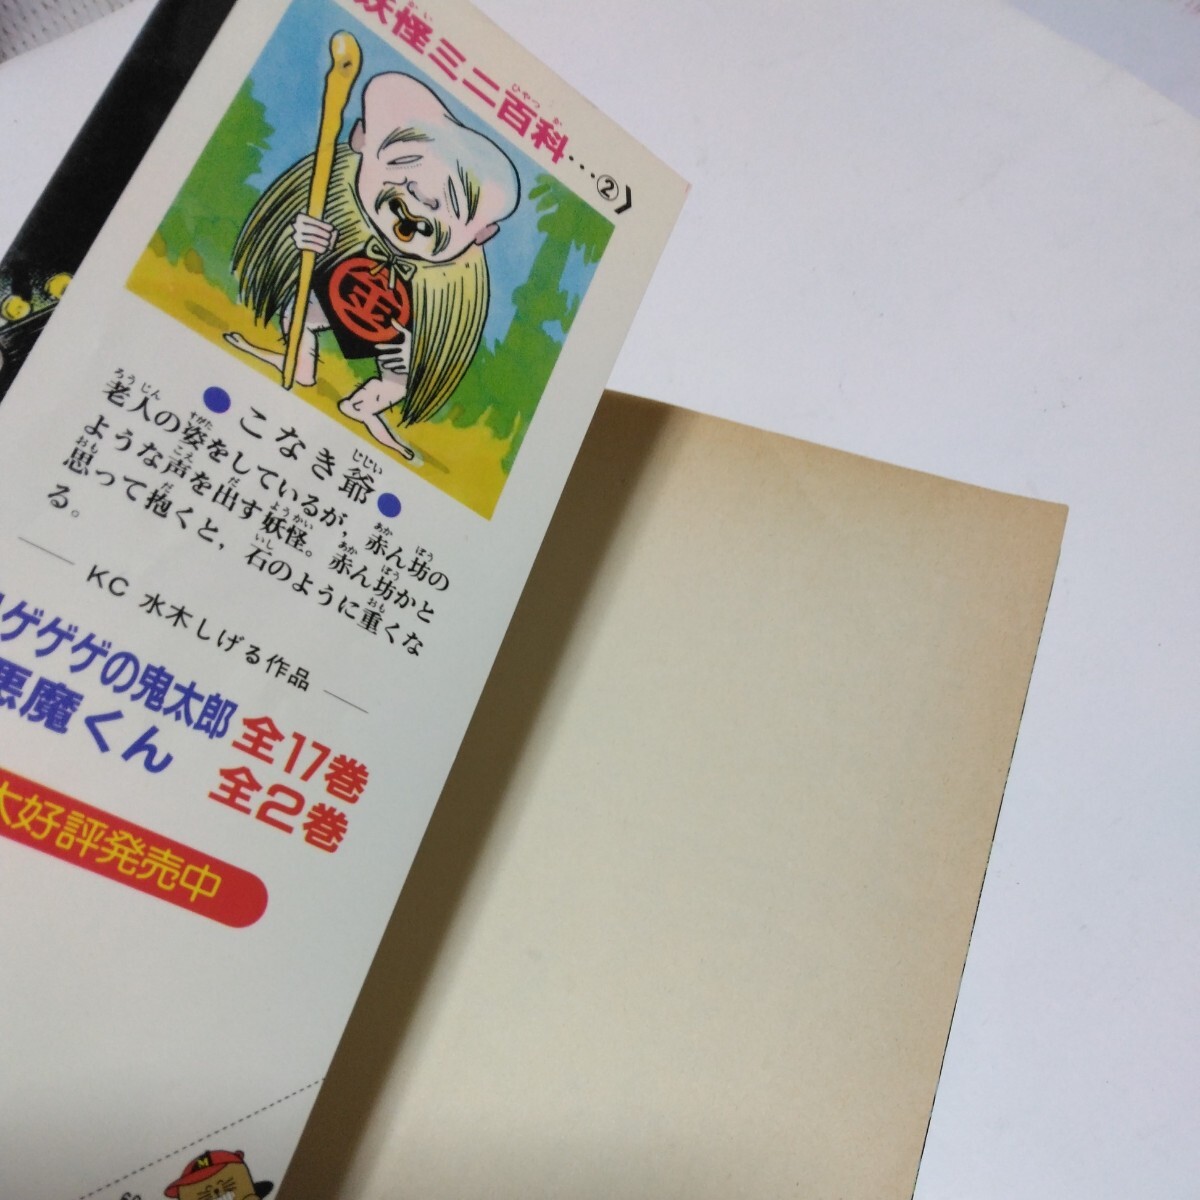 妖怪ミニ百科…②》
金
●こなき爺●
老人の姿をしているが，赤ん坊の
ような声を出す妖怪。赤ん坊かと
思って抱くと，石のように重くな
る。
KC 水木しげる作品
ゲゲゲの鬼太郎 全17巻
悪魔くん 全2巻
大好評発売中
M